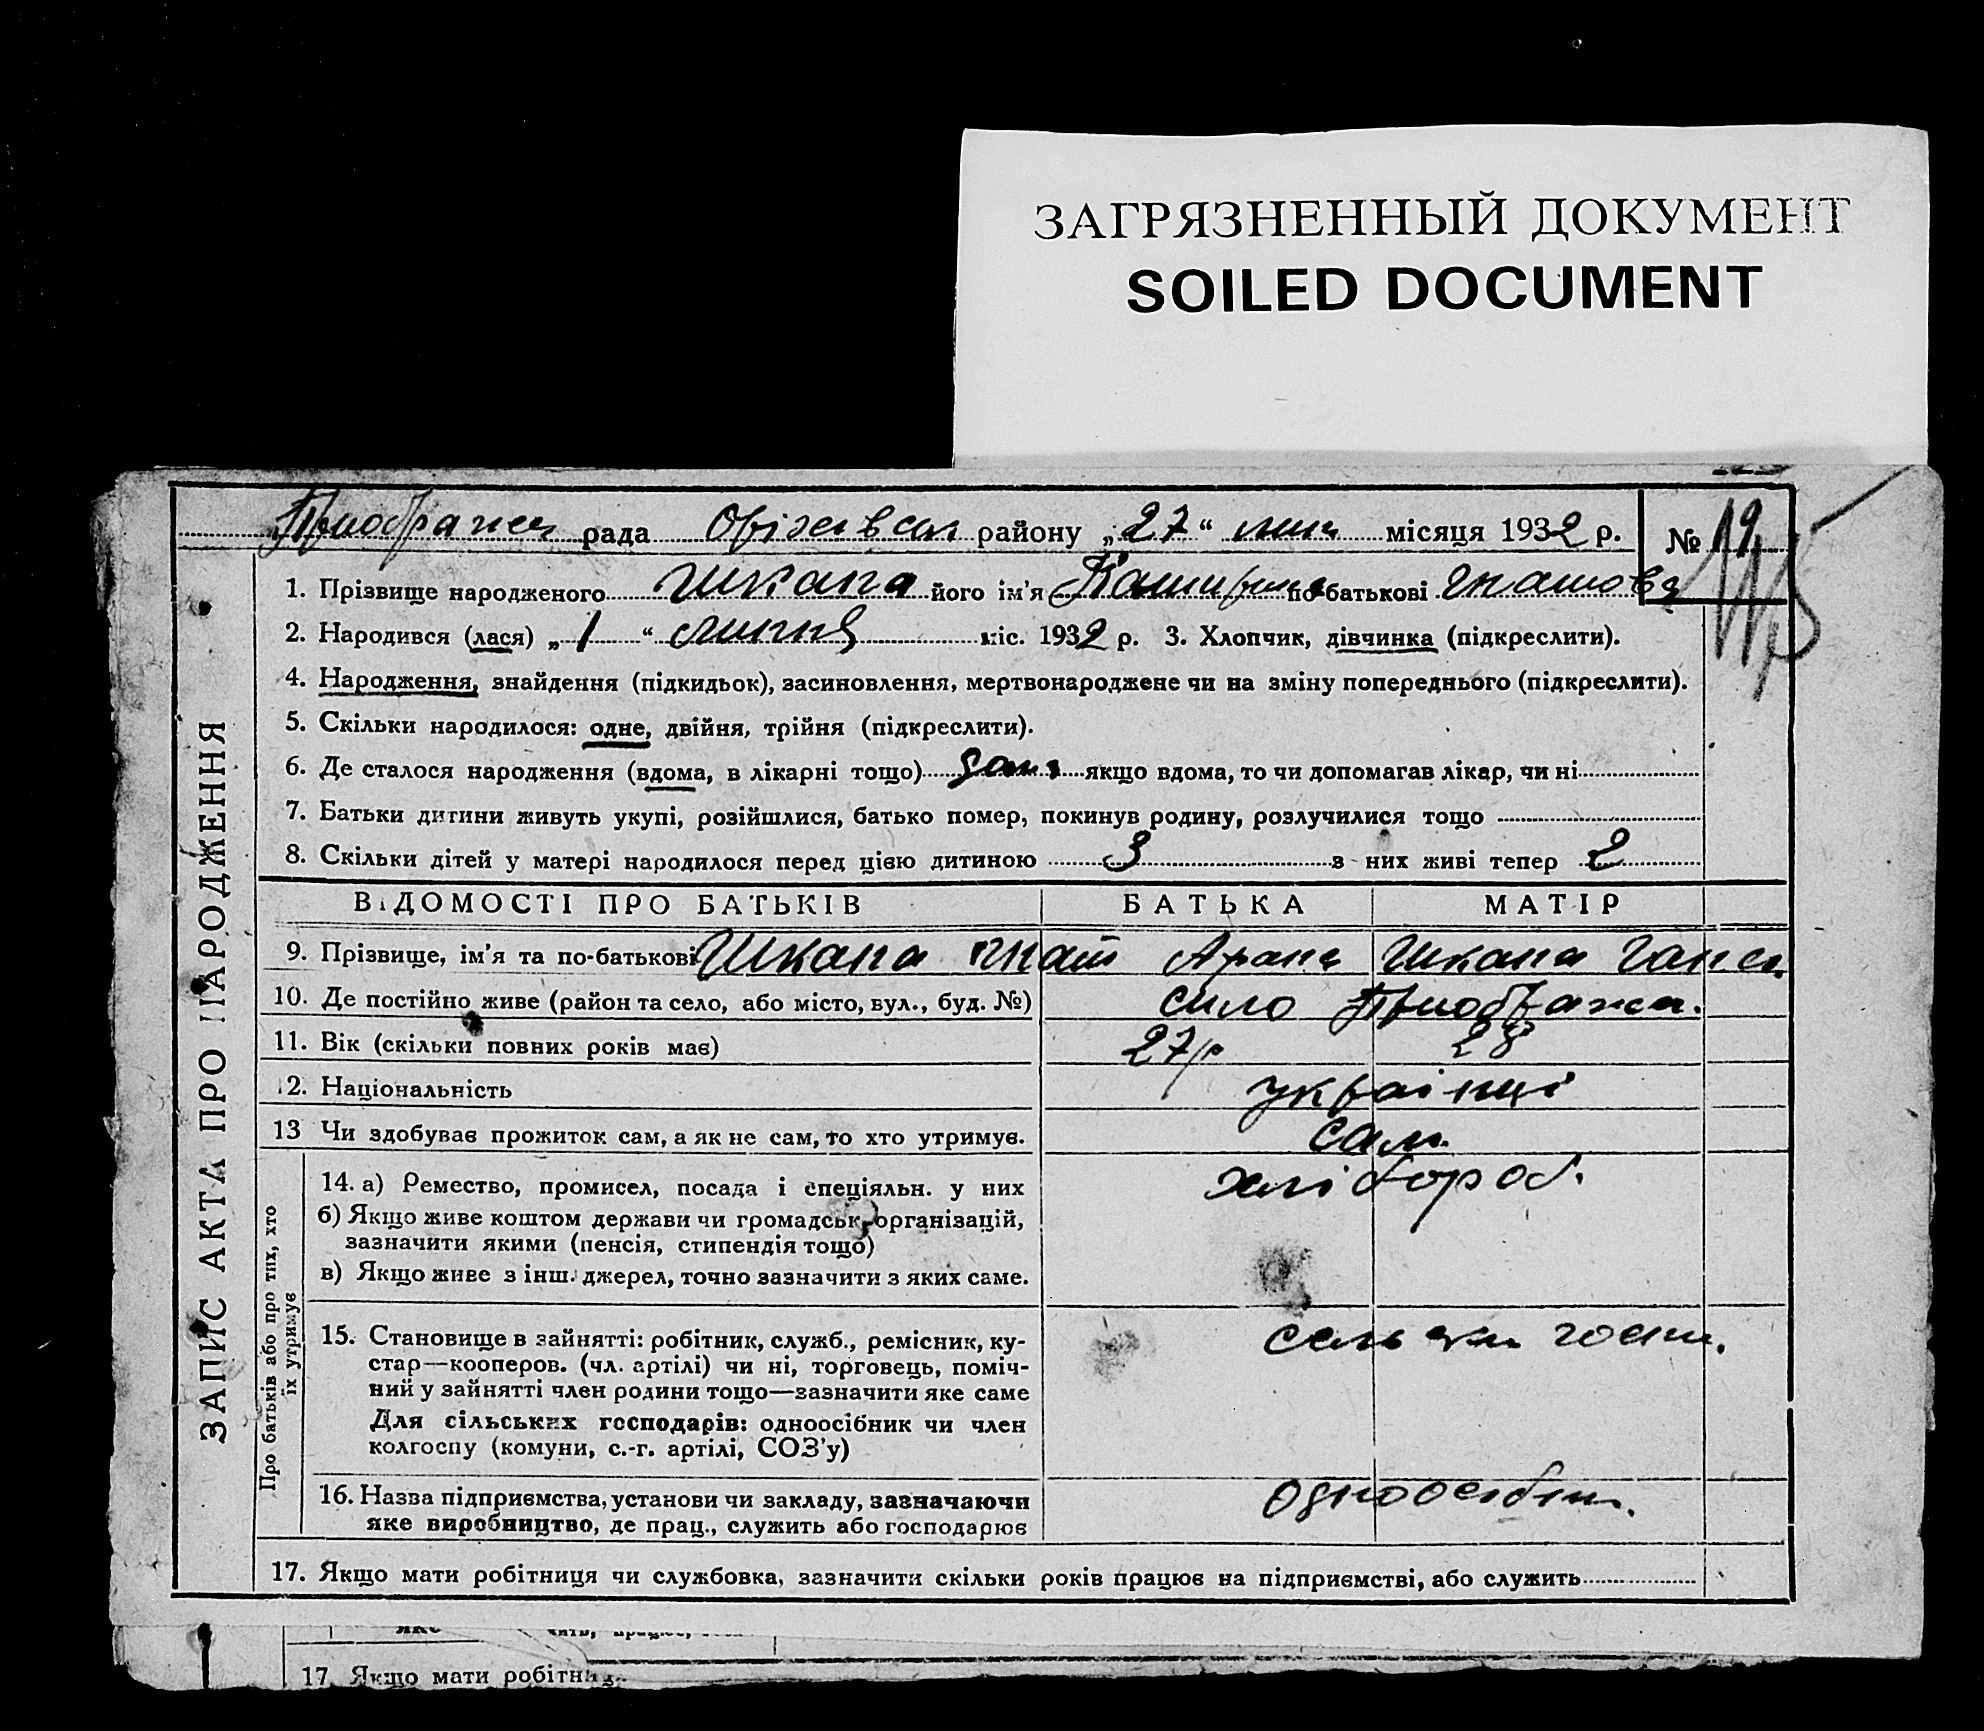 ЗАГРЯЗНЕННЫЙ ДОКУМЕНТ
SOILED DOCUMENT
рада району „27“ місяця 1932 р. № 19
1. Прізвище народженого Шкапа його ім'я по батькові Гнатова
2. Народився (лася) „1“ липня міс. 1932 р. 3. Хлопчик, дівчинка (підкреслити).
4. Народження, знайдення (підкидьок), засиновлення, мертвонароджене чи на зміну попереднього (підкреслити).
5. Скільки народилося: одне, двійня, трійня (підкреслити).
6. Де сталося народження (вдома, в лікарні тощо) дома якщо вдома, то чи допомагав лікар, чи ні
7. Батьки дитини живуть укупі, розійшлися, батько помер, покинув родину, розлучилися тощо
8. Скільки дітей у матері народилося перед цією дитиною 3 з них живі тепер 2
ВІДОМОСТІ ПРО БАТЬКІВ БАТЬКА МАТІР
9. Прізвище, ім'я та по-батькові Шкапа Гнат Шкапа
10. Де постійно живе (район та село, або місто, вул., буд. №) село
11. Вік (скільки повних років має) 27р 28
12. Національність українці
13 Чи здобуває прожиток сам, а як не сам, то хто утримує. сам
14. а) Ремество, промисел, посада і спеціяльн. у них хлібороб.
б) Якщо живе коштом держави чи громадськ. організацій,
зазначити якими (пенсія, стипендія тощо)
в) Якщо живе з інш. джерел, точно зазначити з яких саме.
15. Становище в зайнятті: робітник, служб., ремісник, ку-
стар—кооперов. (чл. артілі) чи ні, торговець, поміч-
ний у зайнятті член родини тощо—зазначити яке саме
Для сільських господарів: одноосібник чи член
колгоспу (комуни, с.-г. артілі, СОЗ'у)
16. Назва підприємства, установи чи закладу, зазначаючи одноосібн.
яке виробництво, де прац., служить або господарює
17. Якщо мати робітниця чи службовка, зазначити скільки років працює на підприємстві, або служить
ЗАПИС АКТА ПРО НАРОДЖЕННЯ
Про батьків або про тих, хто
їх утримує
17 Якщо мати робітни